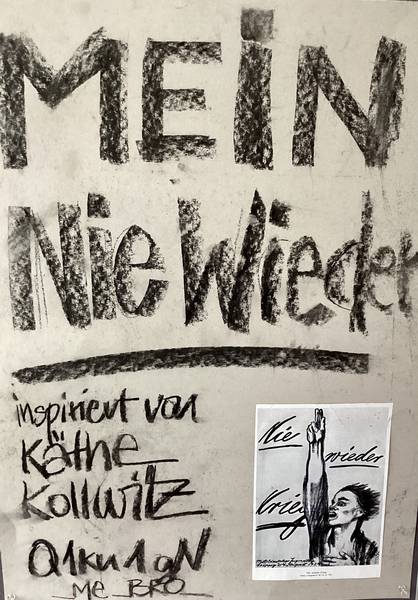 MEIN
Nie Wieder
inspiriert von
Käthe
Kollwitz
Q1Ku1 GN
Me BRO
Nie
wieder
Krieg